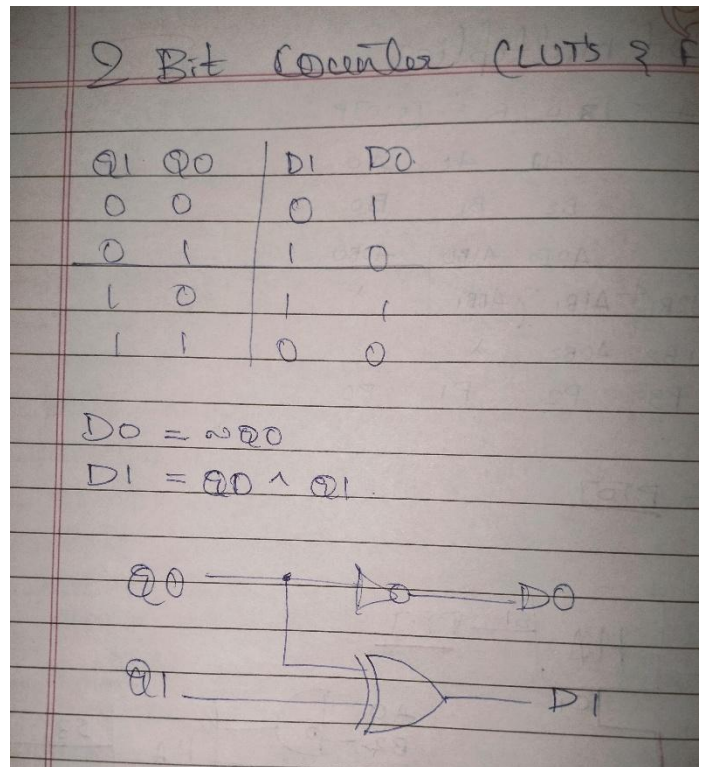 2 Bit Counter (LUT's & F
Q1 Q0 D1 D0
0 0 0 1
0 1 1 0
1 0 1 1
1 1 0 0
D0 = ~Q0
D1 = Q0 ^ Q1.
Q0 D0
Q1 D1